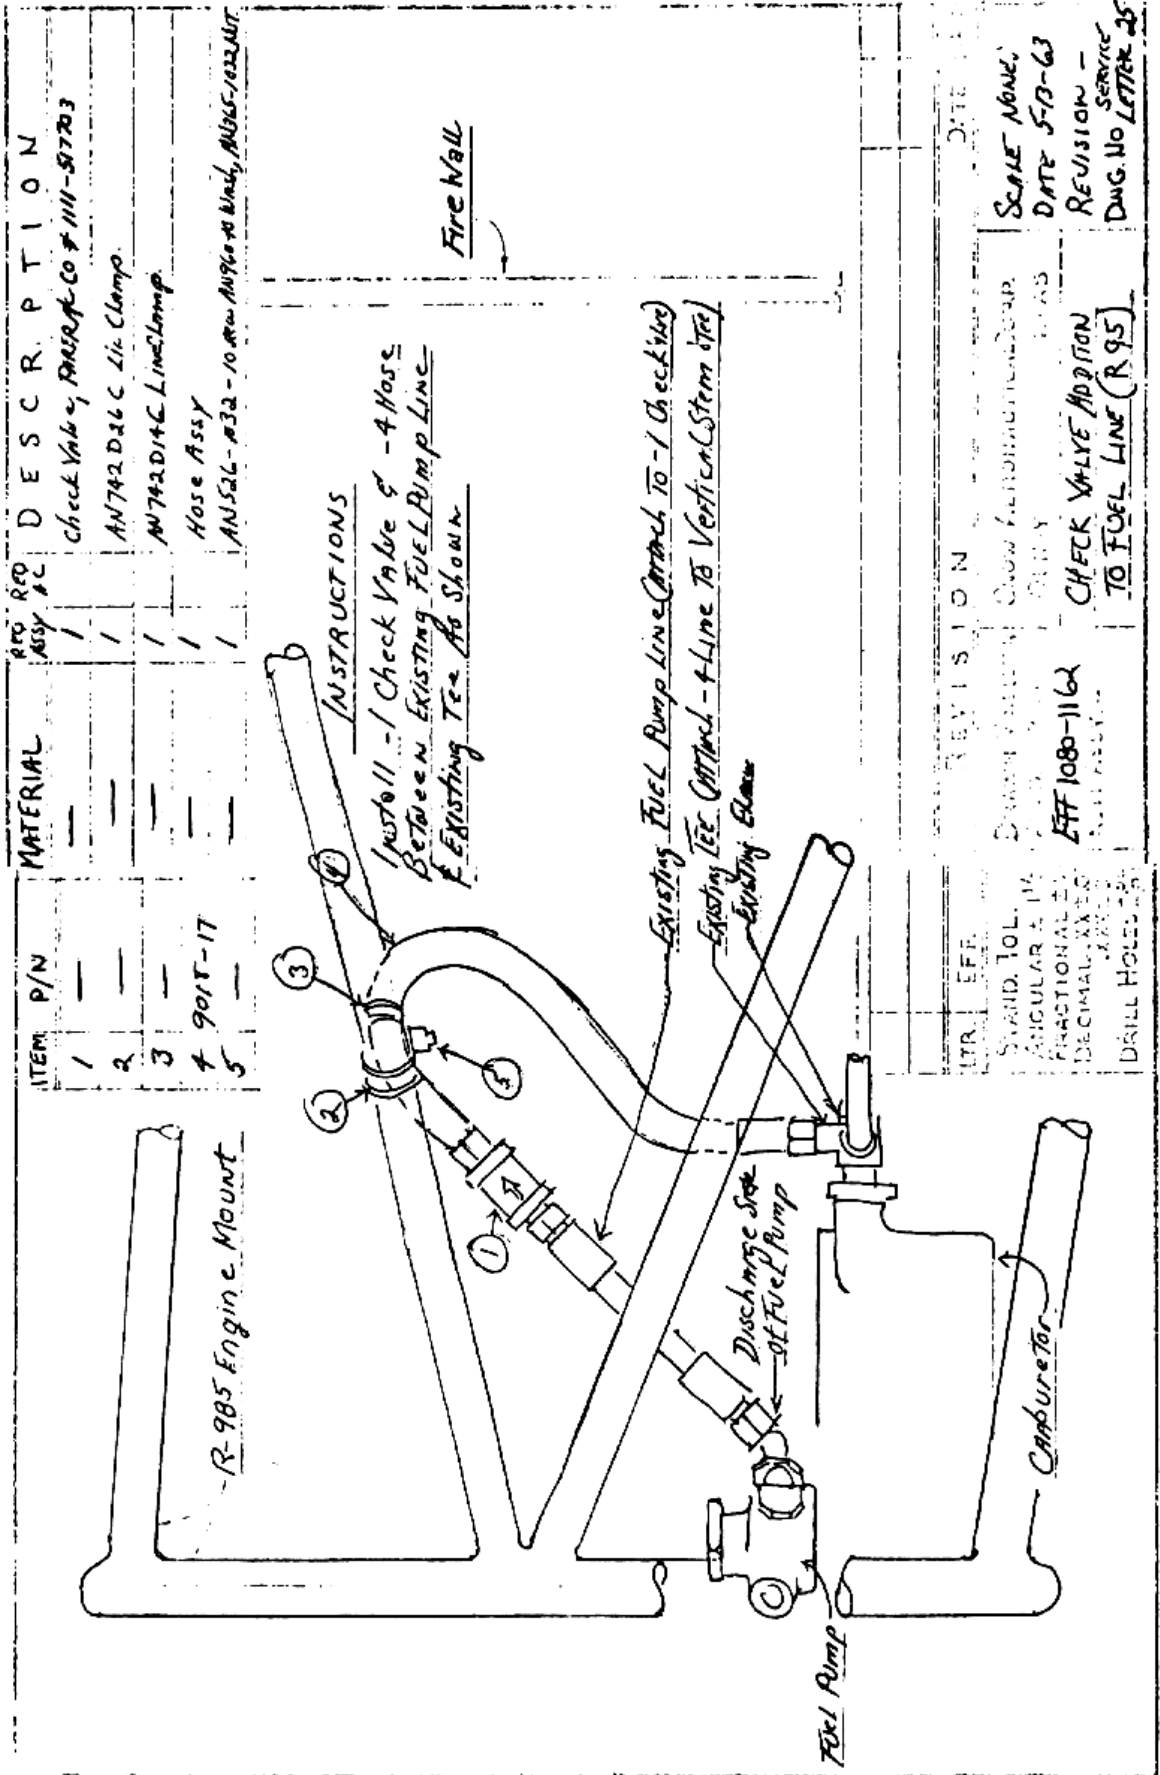 ITEM P/N MATERIAL REQ ASSY REQ AC DESCRIPTION
1 — — 1 Check Valve, PARKER CO # 1111-517703
2 — — 1 AN742D26C Line Clamp.
3 — — 1 AN742D14C Line Clamp.
4 9015-17 — 1 Hose Assy
5 — — 1 AN526-1032-10
R-985 Engine Mount
Fire Wall
INSTRUCTIONS
Install -1 Check Valve & -4 Hose
Between Existing Fuel Pump Line
& Existing Tee As Shown
1
2
3
4
5
Existing Fuel Pump Line (Attach To -1 Check Valve)
Existing Tee (Attach -4 Line To Vertical Stem of Tee)
Existing Elbow
Discharge Side
of Fuel Pump
Fuel Pump
Carburetor
LTR EFF. REVISION DATE
STAND. TOL.
ANGULAR ±
FRACTIONAL ±
DECIMAL
DRILL HOLES
EFF 1080-1162
CHECK VALVE ADDITION
TO FUEL LINE (R95)
SCALE NONE.
DATE 5-13-63
REVISION -
DWG. NO SERVICE LETTER 25